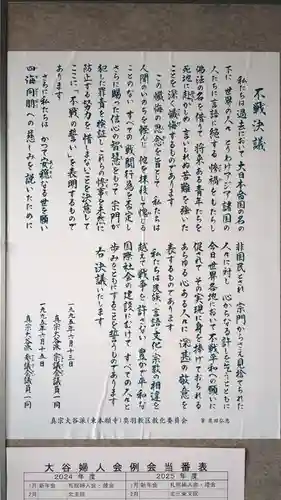 不戦決議
私たちは過去において、大日本帝国の名の
下に、世界の人々、とりわけアジア諸国の
人たちに言語に絶する惨禍をもたらし
仏法の名を借りて、将来ある青年たちを
死地に赴かしめ、言いしれぬ苦難を強いた
ことを、深く懺悔するものであります
この懺悔の思念を旨として、私たちは
人間のいのちを軽んじ、他を抹殺して愧じる
ことのない、すべての戦闘行為を否定し
さらに賜った信心の智慧をもって、宗門が
犯した罪責を検証し、これらの惨事を未然に
防止する努力を惜しまないことを決意して
ここに「不戦の誓い」を表明するもので
あります
さらに私たちは、かつて安穏なる世を願い
四海同朋への慈しみを説いたために
非国民とされ、宗門からさえ見捨てられた
人々に対し、心からなる許しを乞うとともに
今日世界各地において不戦平和への願いに
促されて、その実現に身を捧げておられる
あらゆる心ある人々に、深甚の敬意を
表するものであります
私たちは民族、言語、文化、宗教の相違を
越えて、戦争を許さない、豊かで平和な
国際社会の建設にむけて、すべての人々と
歩みをともにすることを誓うものであります
右、決議いたします
一九九五年六月十三日
真宗大谷派 宗議会議員一同
一九九五年六月十五日
真宗大谷派 参議会議員一同
真宗大谷派(東本願寺)奥羽教区教化委員会
大谷婦人会例会当番表
2024 年度
2025 年度
1月 新年会
札幌婦人会・総会
1月 新年会
札幌婦人会・総会
2月
北支区
2月
北三東支区